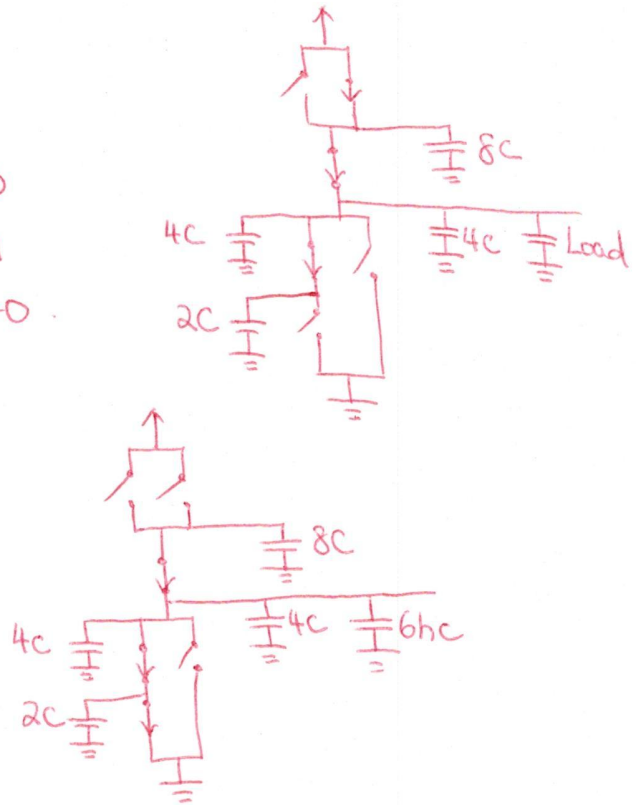 8C
4C
4C
Load
2C
0
8C
4C
4C
6hC
2C